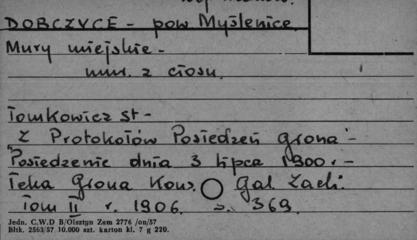 DOBCZYCE - pow Myślenice.
Mury miejskie -
mur. z ciosu.
Tomkowicz St -
Z Protokołów Posiedzeń Grona -
Posiedzenie dnia 3 lipca 1900 r. -
Teka Grona Kons. Gal Zach.
Tom II r. 1906. s. 369.
Jedn. C.W.D B/Olsztyn Zam 2776 /on/57
Bltk. 2563/57 10.000 szt. karton kl. 7 g 220.